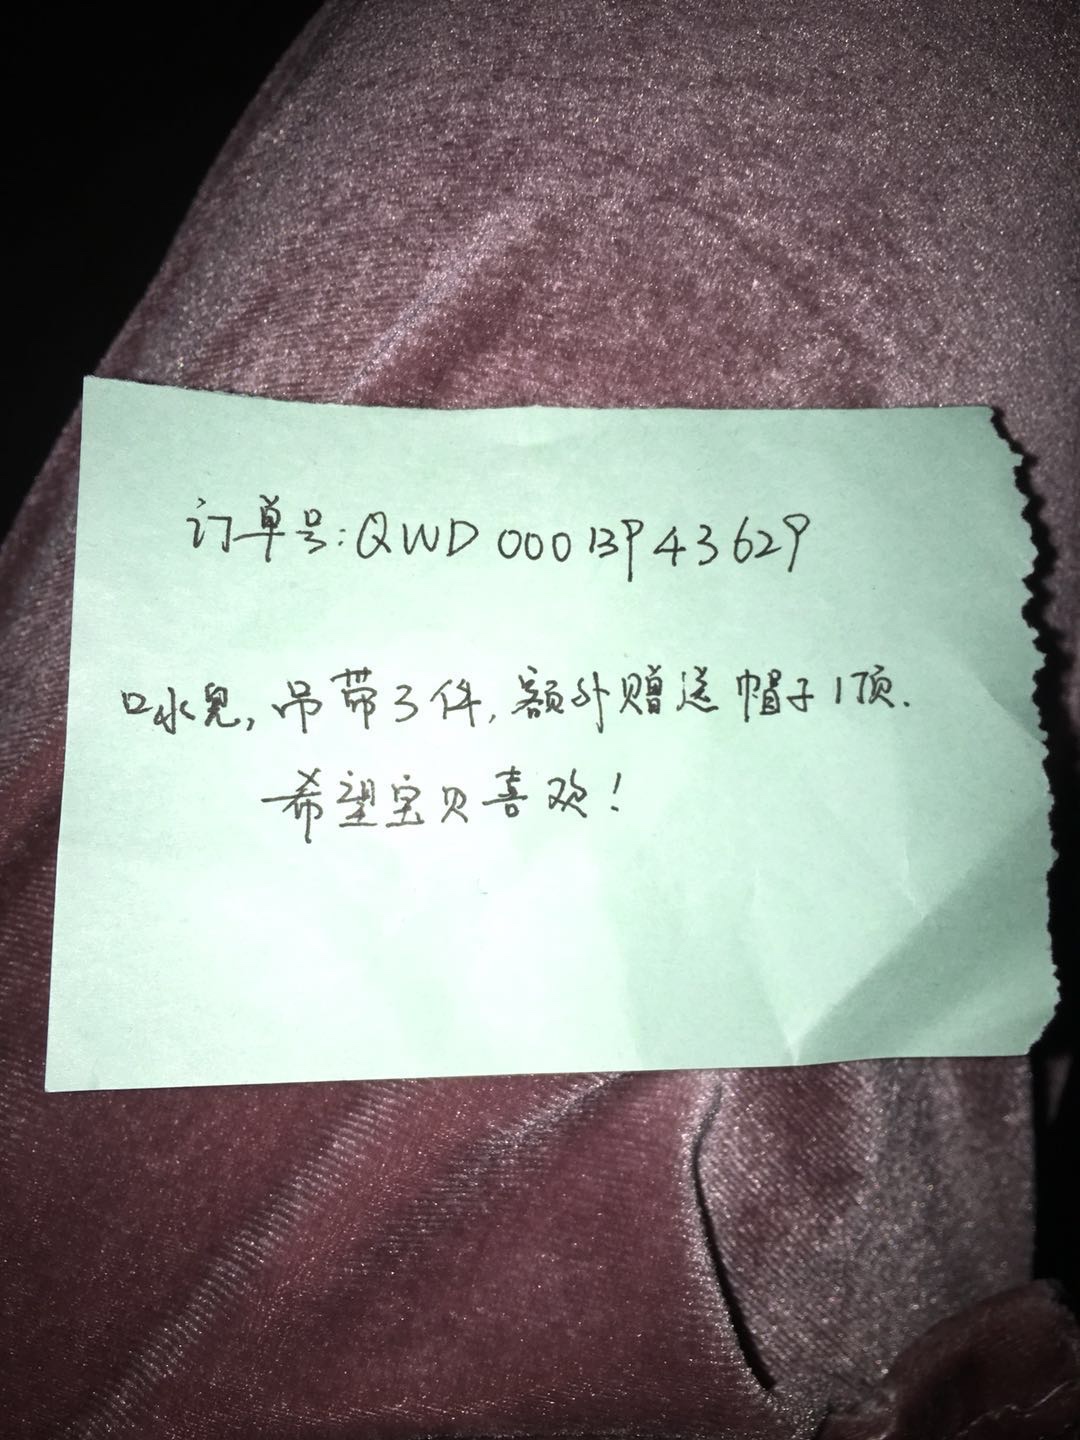 订单号:QWD00013943629
口水兜,吊带3件,额外赠送帽子1顶.
希望宝贝喜欢!